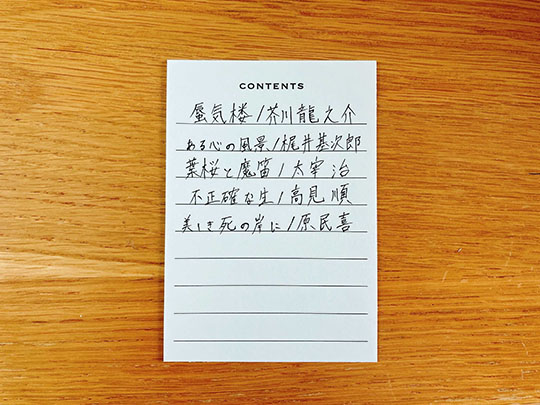 CONTENTS
蜃気楼/芥川龍之介
ある心の風景/梶井基次郎
葉桜と魔笛/太宰治
不正確な生/高見順
美しき死の岸に/原民喜